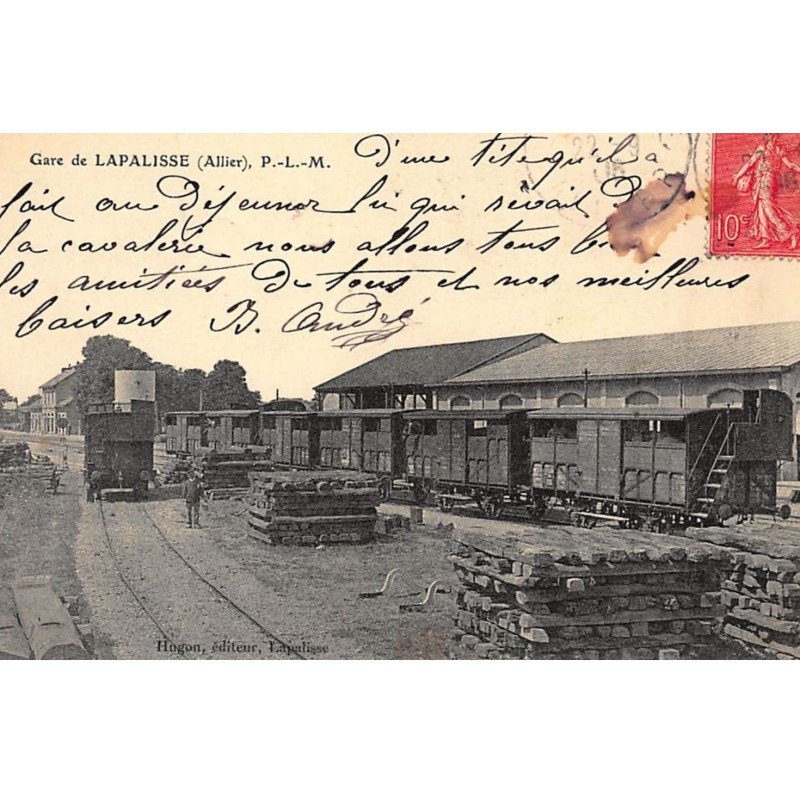 Gare de LAPALISSE (Allier), P.-L.-M.
D'une tite qu'il a
fait au Déjeuner lui qui rêvait D
la cavalerie nous allons tous b
les amitiées De tous et nos meilleurs
baisers B. André
10c
Hugon, éditeur, Lapalisse